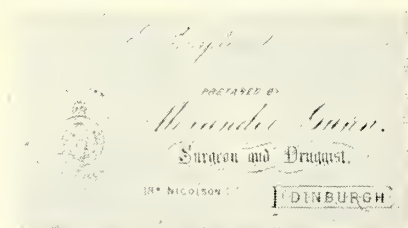 PREPARED BY
Alexander Gunn.
Surgeon and Druggist.
NICOLSON
EDINBURGH